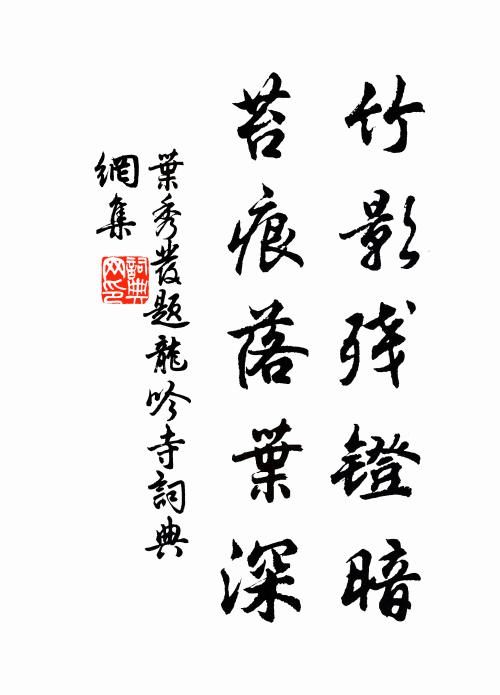 竹影残鐙暗
苔痕落葉深
葉秀發題龍吟寺詞典
網集
詞典網印